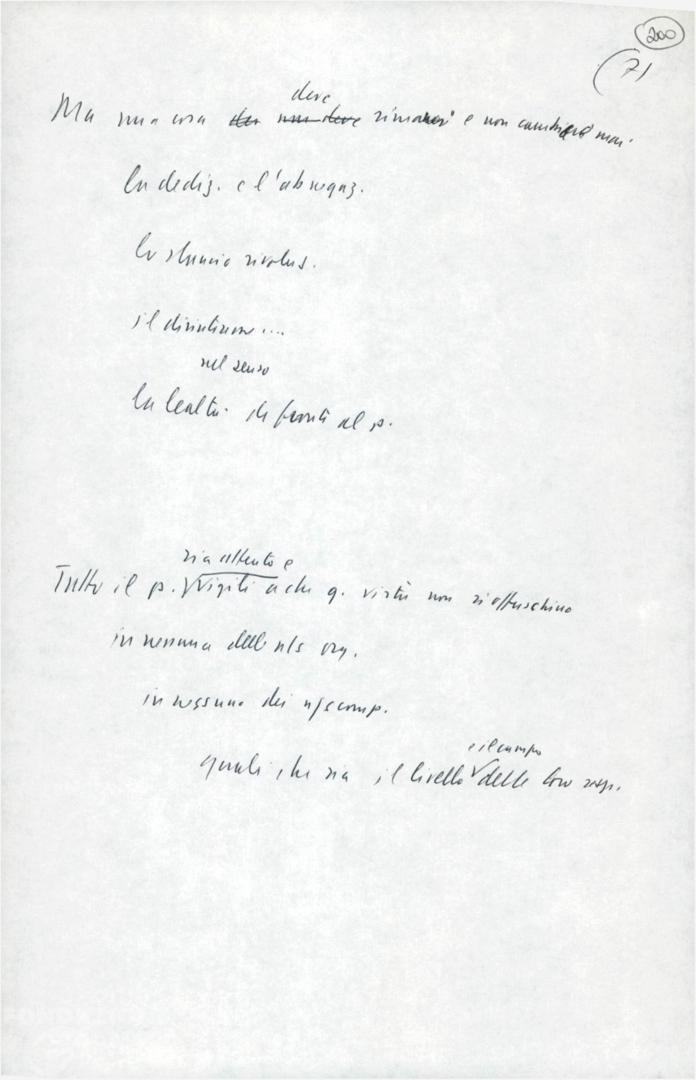 200
(7)
deve
Ma una cosa non deve rimaner e non cambierà mai
la dediz. e l'abnegaz.
lo slancio rivoluz.
il disinteresse ...
nel senso
la lealtà di fronte al p.
sia attento e
Tutto il p. vigili a che q. virtù non si offuschino
in nessuna delle ns org.
in nessuno dei ns comp.
e il campo
quali che sia il livello delle loro resp.